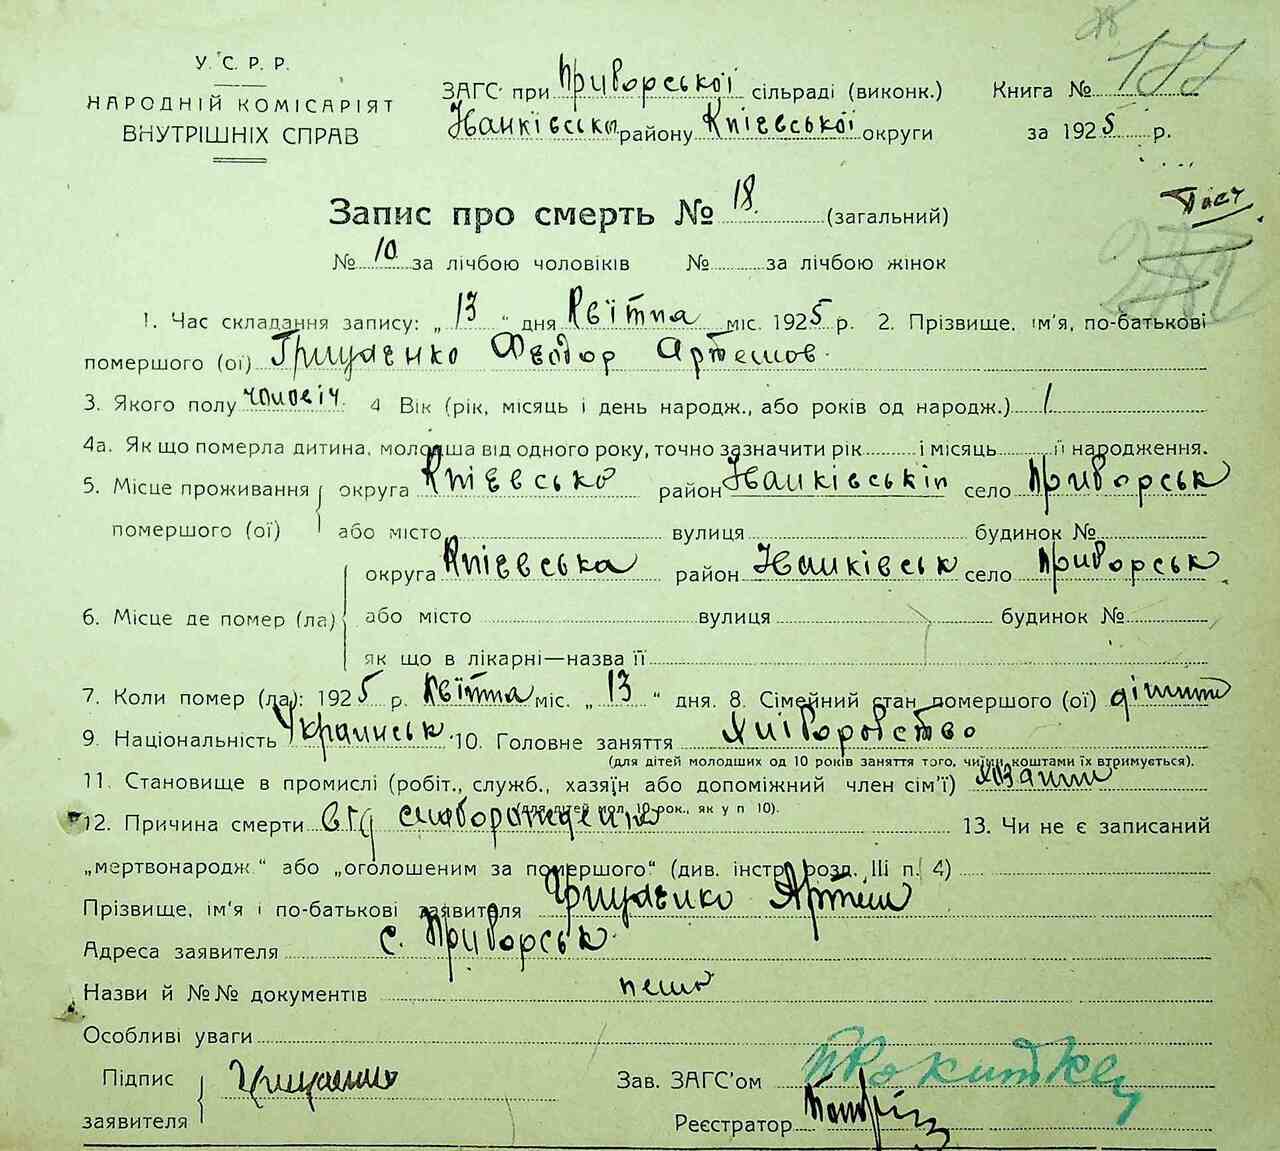 У. С. Р. Р.
НАРОДНІЙ КОМІСАРІЯТ
ВНУТРІШНІХ СПРАВ
ЗАГС при Приборської сільраді (виконк.)
Іванківськ району Київської округи
Книга № 177
за 1925 р.
Запис про смерть № 18. (загальний)
№ 10 за лічбою чоловіків № за лічбою жінок
1. Час складання запису: „ 13 “ дня Квітня міс. 1925 р. 2. Прізвище, ім'я, по-батькові
помершого (ої) Грищенко Федор Артемов.
3. Якого полу чоловіч. 4 Вік (рік, місяць і день народж., або років од народж.) 1
4а. Як що померла дитина, молодша від одного року, точно зазначити рік і місяць її народження.
5. Місце проживання помершого (ої) округа район Іванківськ село Приборськ
або місто вулиця будинок №
6. Місце де помер (ла) округа Київська район Іванківськ село Приборськ
або місто вулиця будинок №
як що в лікарні—назва її
7. Коли помер (ла): 1925 р. Квітня міс. „ 13 “ дня. 8. Сімейний стан помершого (ої)
9. Національність Українськ 10. Головне заняття Хліборобство
(для дітей молодших од 10 років заняття того, чиїми коштами їх втримується).
11. Становище в промислі (робіт., служб., хазяїн або допоміжний член сім'ї)
(для дітей мол. 10 рок., як у п 10).
12. Причина смерти від 13. Чи не є записаний
„мертвонародж.“ або „оголошеним за помершого“ (див. інстр. розд. III п. 4)
Прізвище, ім'я і по-батькові заявителя Грищенко Артем
Адреса заявителя с. Приборськ
Назви й №№ документів нема
Особливі уваги
Підпис заявителя Грищенко
Зав. ЗАГС'ом
Реєстратор